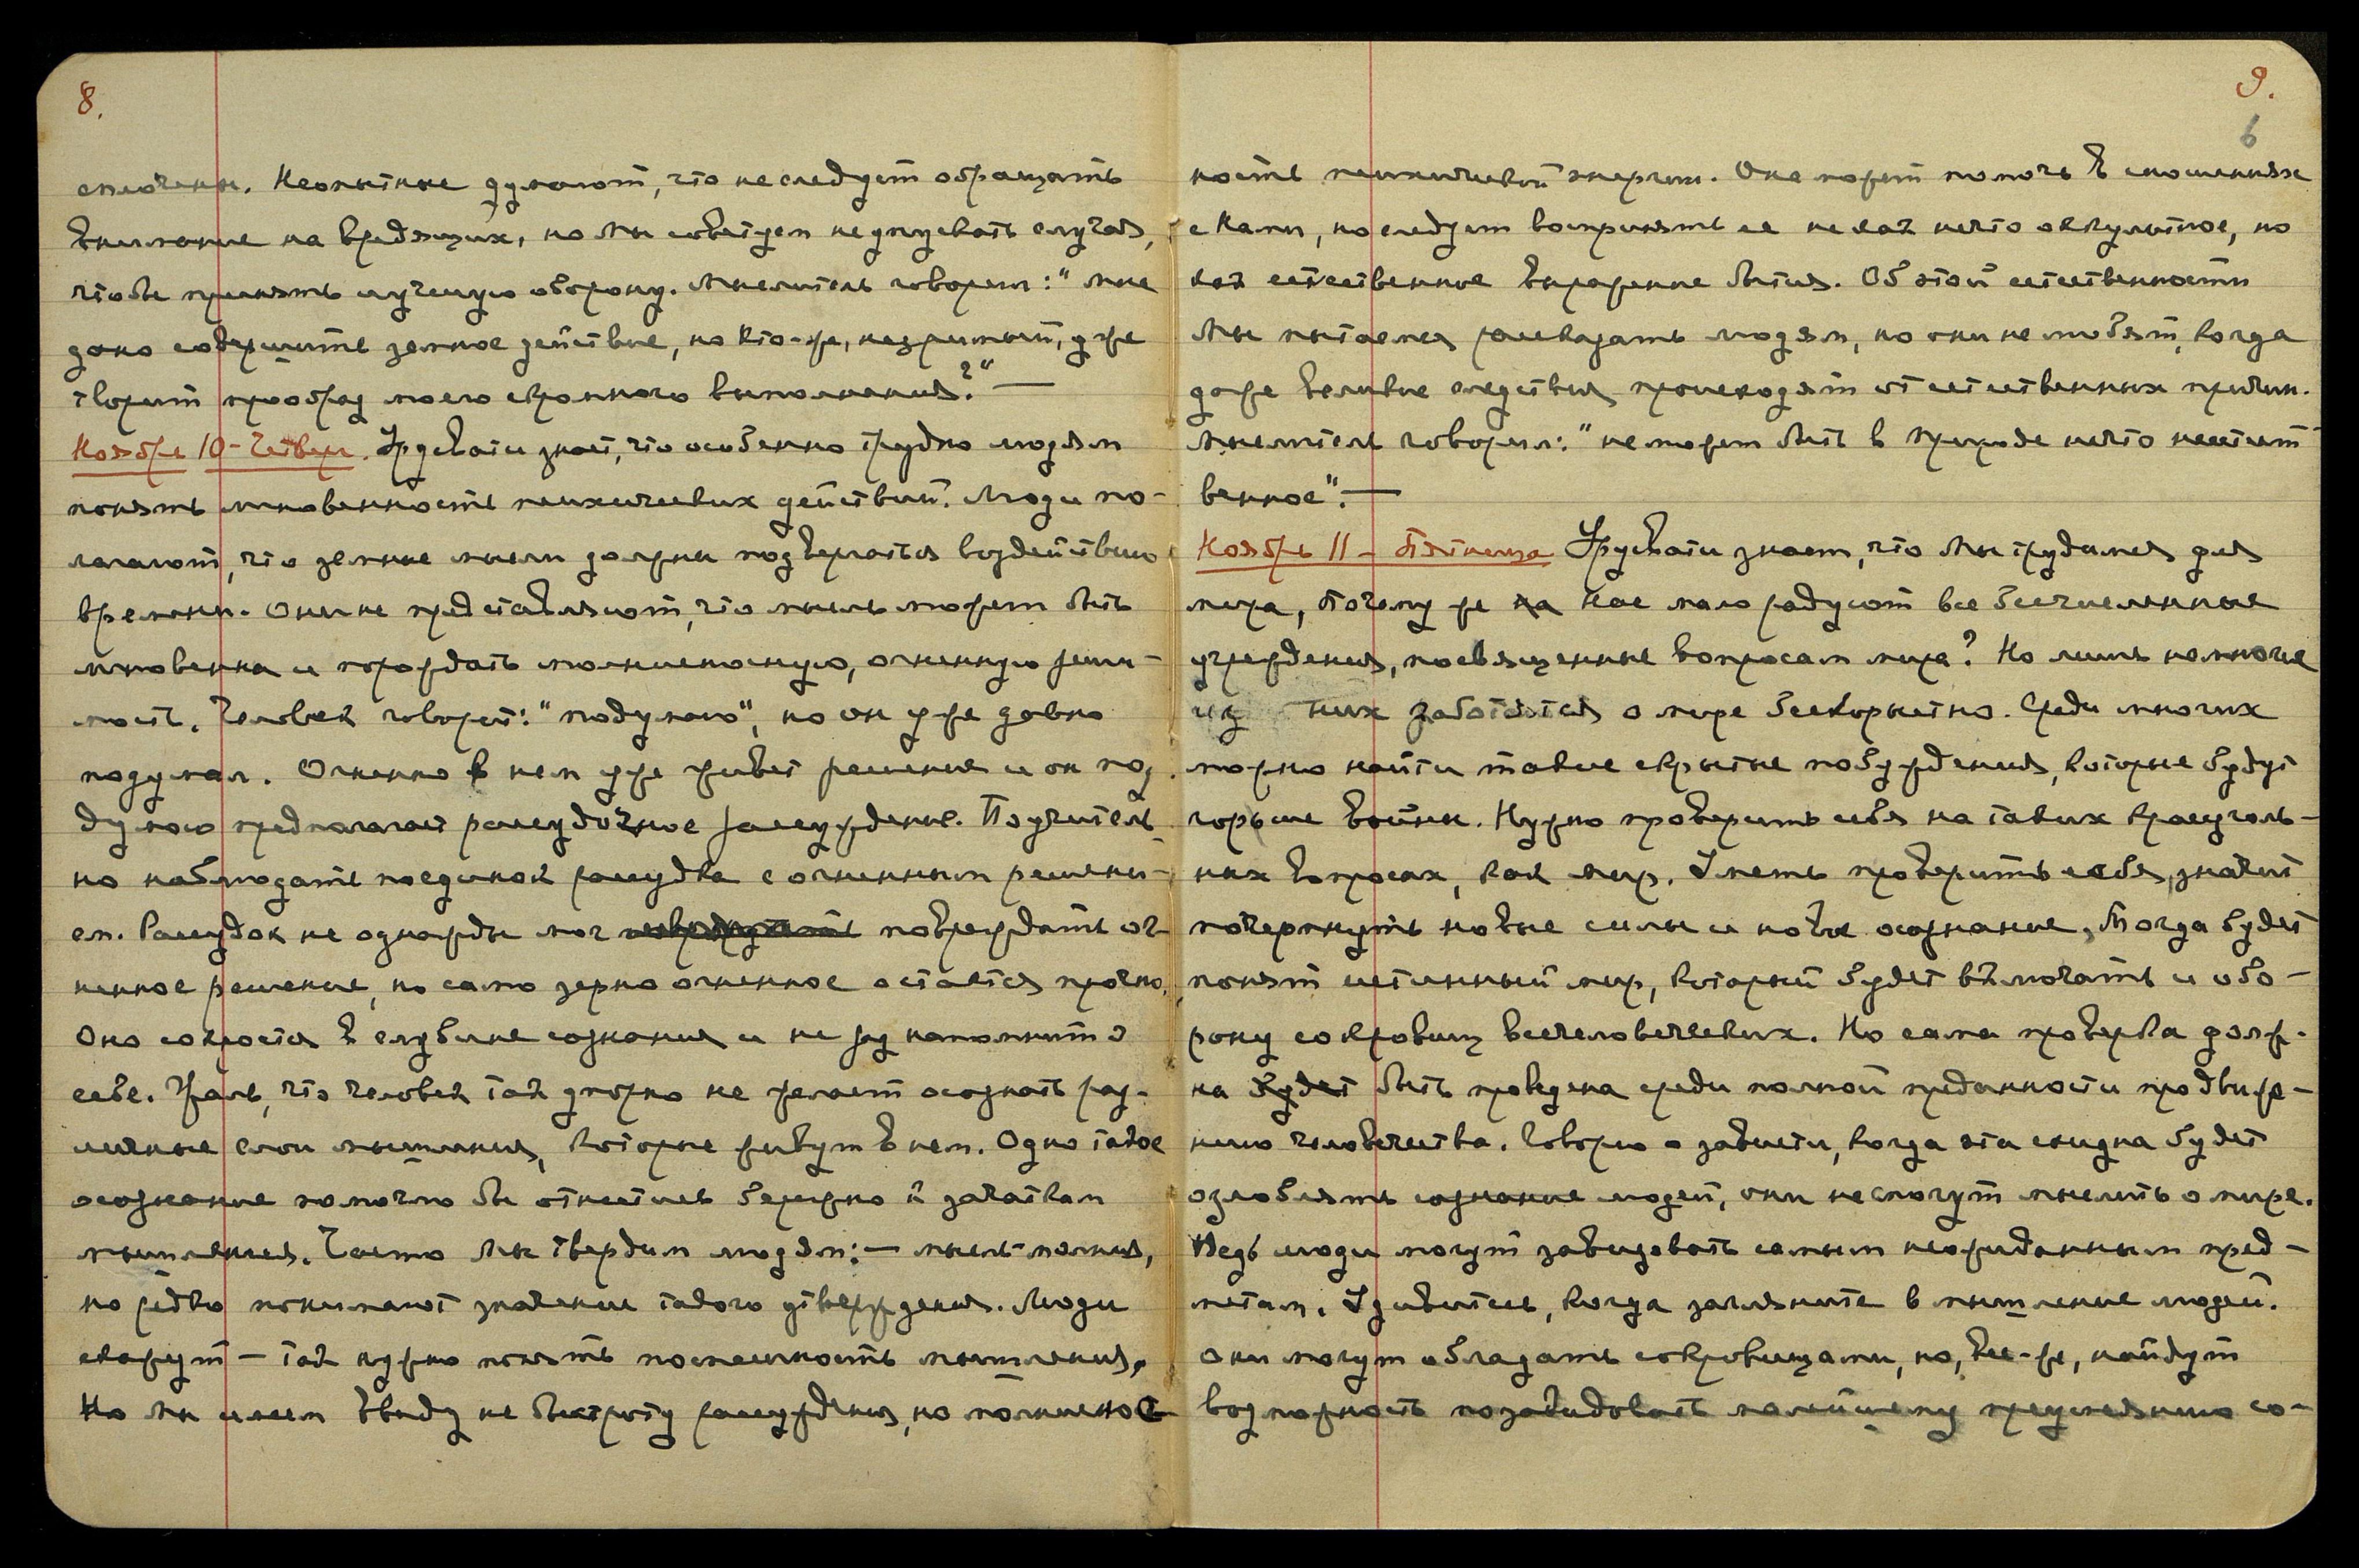 8.
сплочены. Неопытные думают, что не следует обращать
внимание на вредящих, но Мы советуем не упускать случая,
чтобы принять лучшую оборону. Мыслитель говорил: "мне
дано совершить земное действие, но кто-же, незримый, уже
творит прообраз моего скромного выполнения?" —
Ноябрь 10 - Четверг. Урусвати знает, что особенно трудно людям
понять мгновенность психических действий. Люди по-
лагают, что земные мысли должны подвергаться воздействию
времени. Они не представляют, что мысль может быть
мгновенна и порождать молниеносную, огненную реши-
мость. Человек говорит: "подумаю", но он уже давно
подумал. Огненно в нем уже живет решение и он под
думаю предполагает рассудочное рассуждение. Поучитель-
но наблюдать поединок рассудка с огненным решени-
ем. Рассудок не однажды мог повреждать ог-
ненное решение, но само зерно огненное остается прочно.
Оно сохрается в глубине сознания и не раз напомнит о
себе. Жаль, что человек так упорно не желает осознать раз-
личные слои мышления, которые живут в нем. Одно такое
осознание помогло бы отнестись бережно к зачаткам
мышления. Часто Мы твердим людям: — мысль-молния,
но редко понимают значение такого утверждения. Люди
скажут — так нужно понять поспешность мышления,
Но Мы имеем ввиду не быстроту рассуждения, но молниенос-
9.
6
ность психической энергии. Она может помочь в сношениях
с Нами, но следует воспринять ее не как нечто оккультное, но
как естественное выражение бытия. Об этой естественности
Мы пытаемся рассказать людям, но они не любят, когда
даже великие следствия происходят от естественных причин.
Мыслитель говорил: "не может быть в природе нечто неестест-
венное". —
Ноябрь 11 - Пятница Урусвати знает, что Мы трудимся для
мира, Почему же на Нас мало радуют все бесчисленные
учреждения, посвященные вопросам мира? Но лишь немногие
из них заботятся о мире бескорыстно. Среди многих
можно найти такие скрытые побуждения, которые будут
горьше войны. Нужно проверить себя на таких краеуголь-
ных вопросах, как мир. Уметь проверить себя, значит
почерпнуть новые силы и новое осознание, Тогда будет
понят истинный мир, который будет включать и обо-
рону сокровищ всечеловеческих. Но сама проверка долж-
на будет быть проведена среди полной преданности продвиже-
нию человечества. Говорю о зависти, когда эта ехидна будет
озлоблять сознание людей, они не смогут мыслить о мире.
Ведь люди могут завидовать самым неожиданным пред-
метам. Удивитесь, когда заглянете в мышление людей.
Они могут обладать сокровищами, но, все-же, найдут
возможность позавидовать малейшему преуспеянию со-